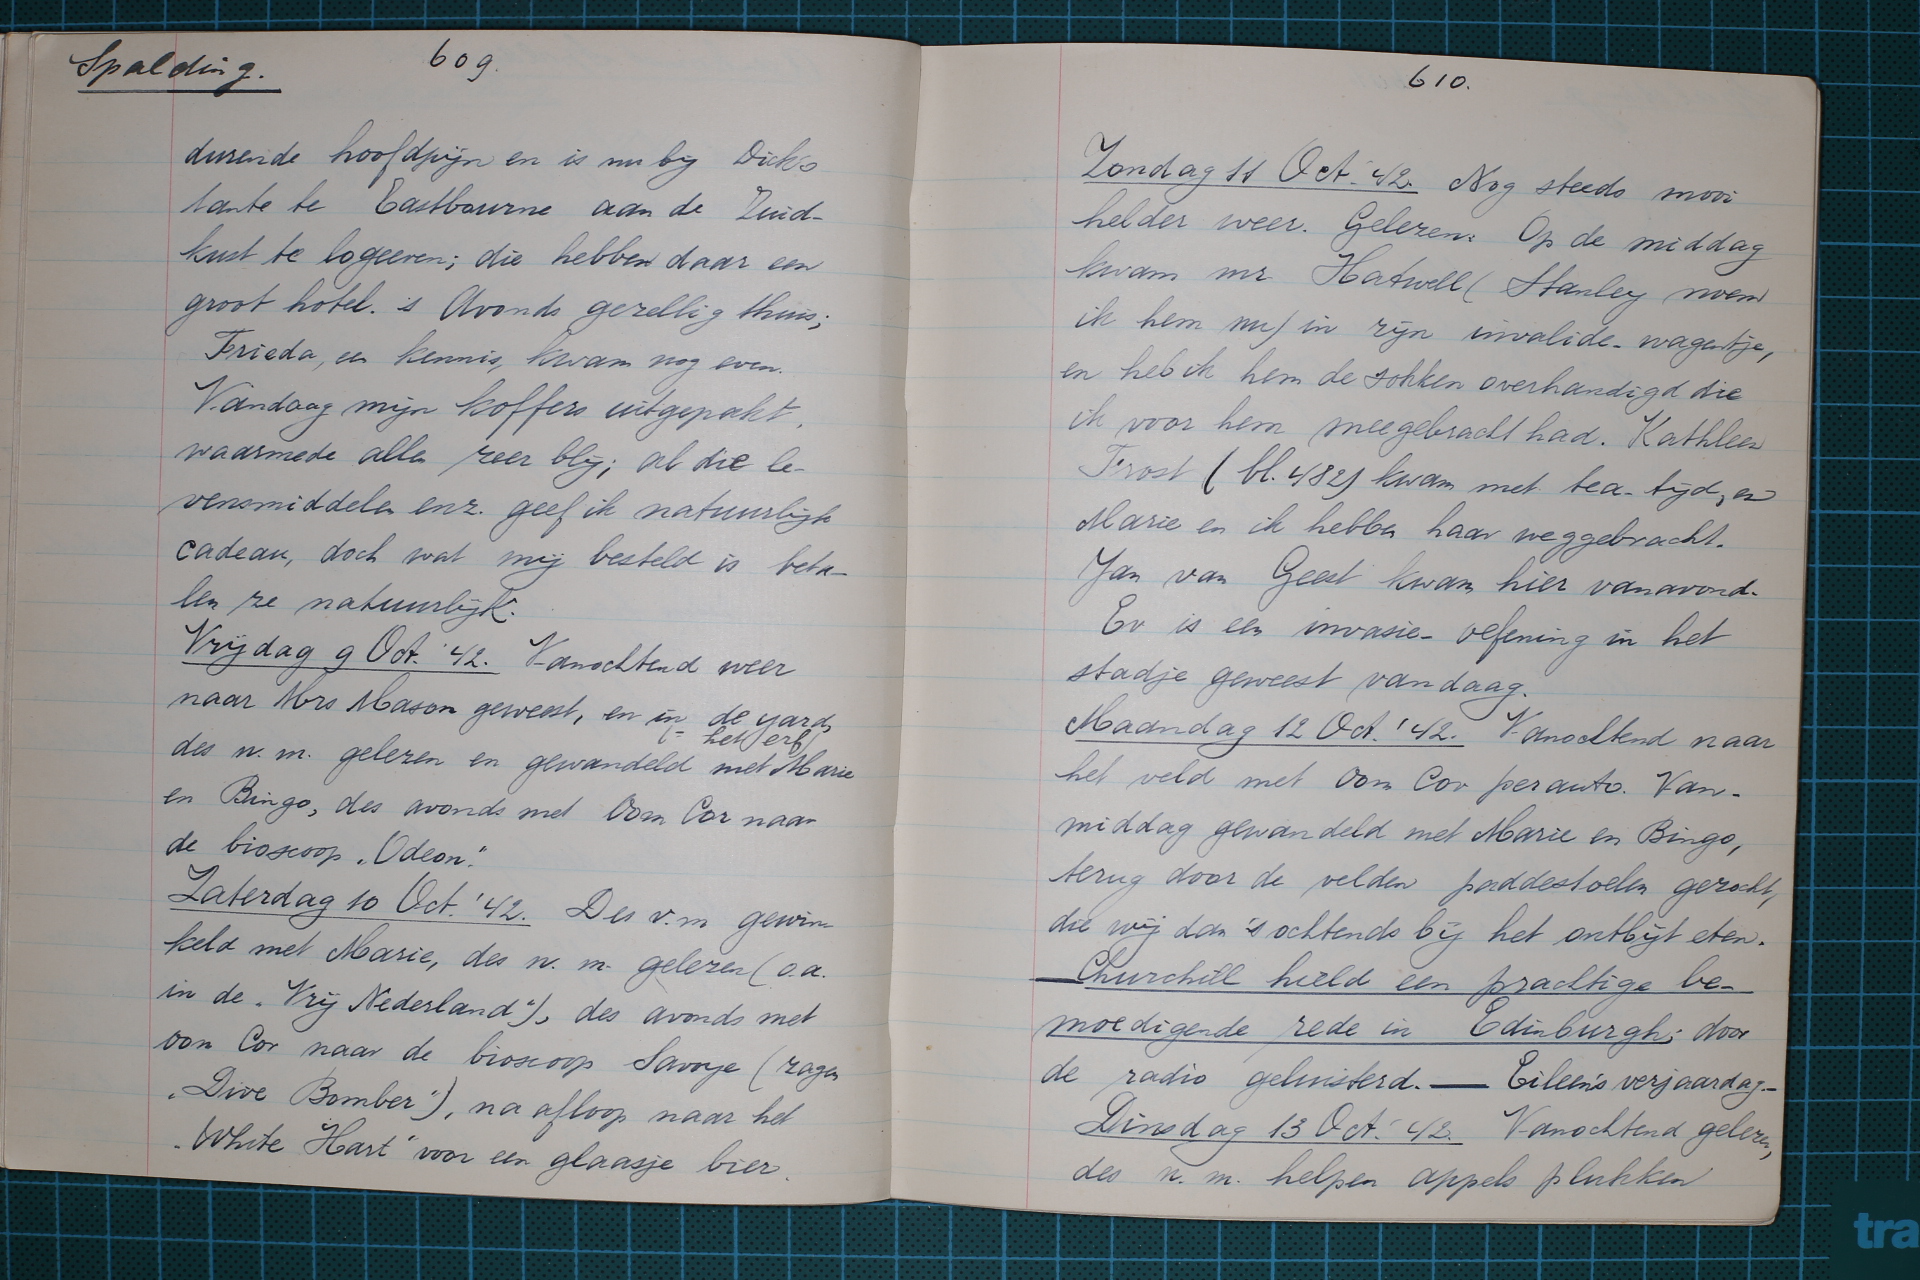 Spalding.
609.
durende hoofdpijn en is nu bij Dick's
tante te Eastbourne aan de Zuid-
kust te logeeren; die hebben daar een
groot hotel. 's Avonds gezellig thuis;
Frieda, een kennis, kwam nog even.
Vandaag mijn koffers uitgepakt,
waarmede allen zeer blij; al die le-
vensmiddelen enz. geef ik natuurlijk
cadeau, doch wat mij besteld is beta-
len ze natuurlijk.
Vrijdag 9 Oct. '42. Vanochtend weer
naar Mrs Mason geweest, en in de yard,
(= het erf)
des n.m. gelezen en gewandeld met Marie
en Bingo, des avonds met Oom Cor naar
de bioscoop „Odeon".
Zaterdag 10 Oct. '42. Des v.m gewin-
keld met Marie, des n.m. gelezen (o.a.
in de „Vrij Nederland"), des avonds met
oom Cor naar de bioscoop Savoye (zagen
„Dive Bomber"), na afloop naar het
„White Hart" voor een glaasje bier.
610.
Zondag 11 Oct. '42. Nog steeds mooi
helder weer. Gelezen. Op de middag
kwam mr Hatwell (Stanley noem
ik hem nu) in zijn invalide-wagentje,
en heb ik hem de sokken overhandigd die
ik voor hem meegebracht had. Kathleen
Frost (bl. 482) kwam met tea-tijd, en
Marie en ik hebben haar weggebracht.
Jan van Geest kwam hier vanavond.
Er is een invasie-oefening in het
stadje geweest vandaag.
Maandag 12 Oct. '42. Vanochtend naar
het veld met Oom Cor per auto. Van-
middag gewandeld met Marie en Bingo,
terug door de velden paddestoelen gezocht,
die wij dan 's ochtends bij het ontbijt eten.
— Churchill hield een prachtige be-
moedigende rede in Edinburgh; door
de radio geluisterd. — Eileen's verjaardag. —
Dinsdag 13 Oct. '42. Vanochtend gelezen,
des n.m. helpen appels plukken
tra